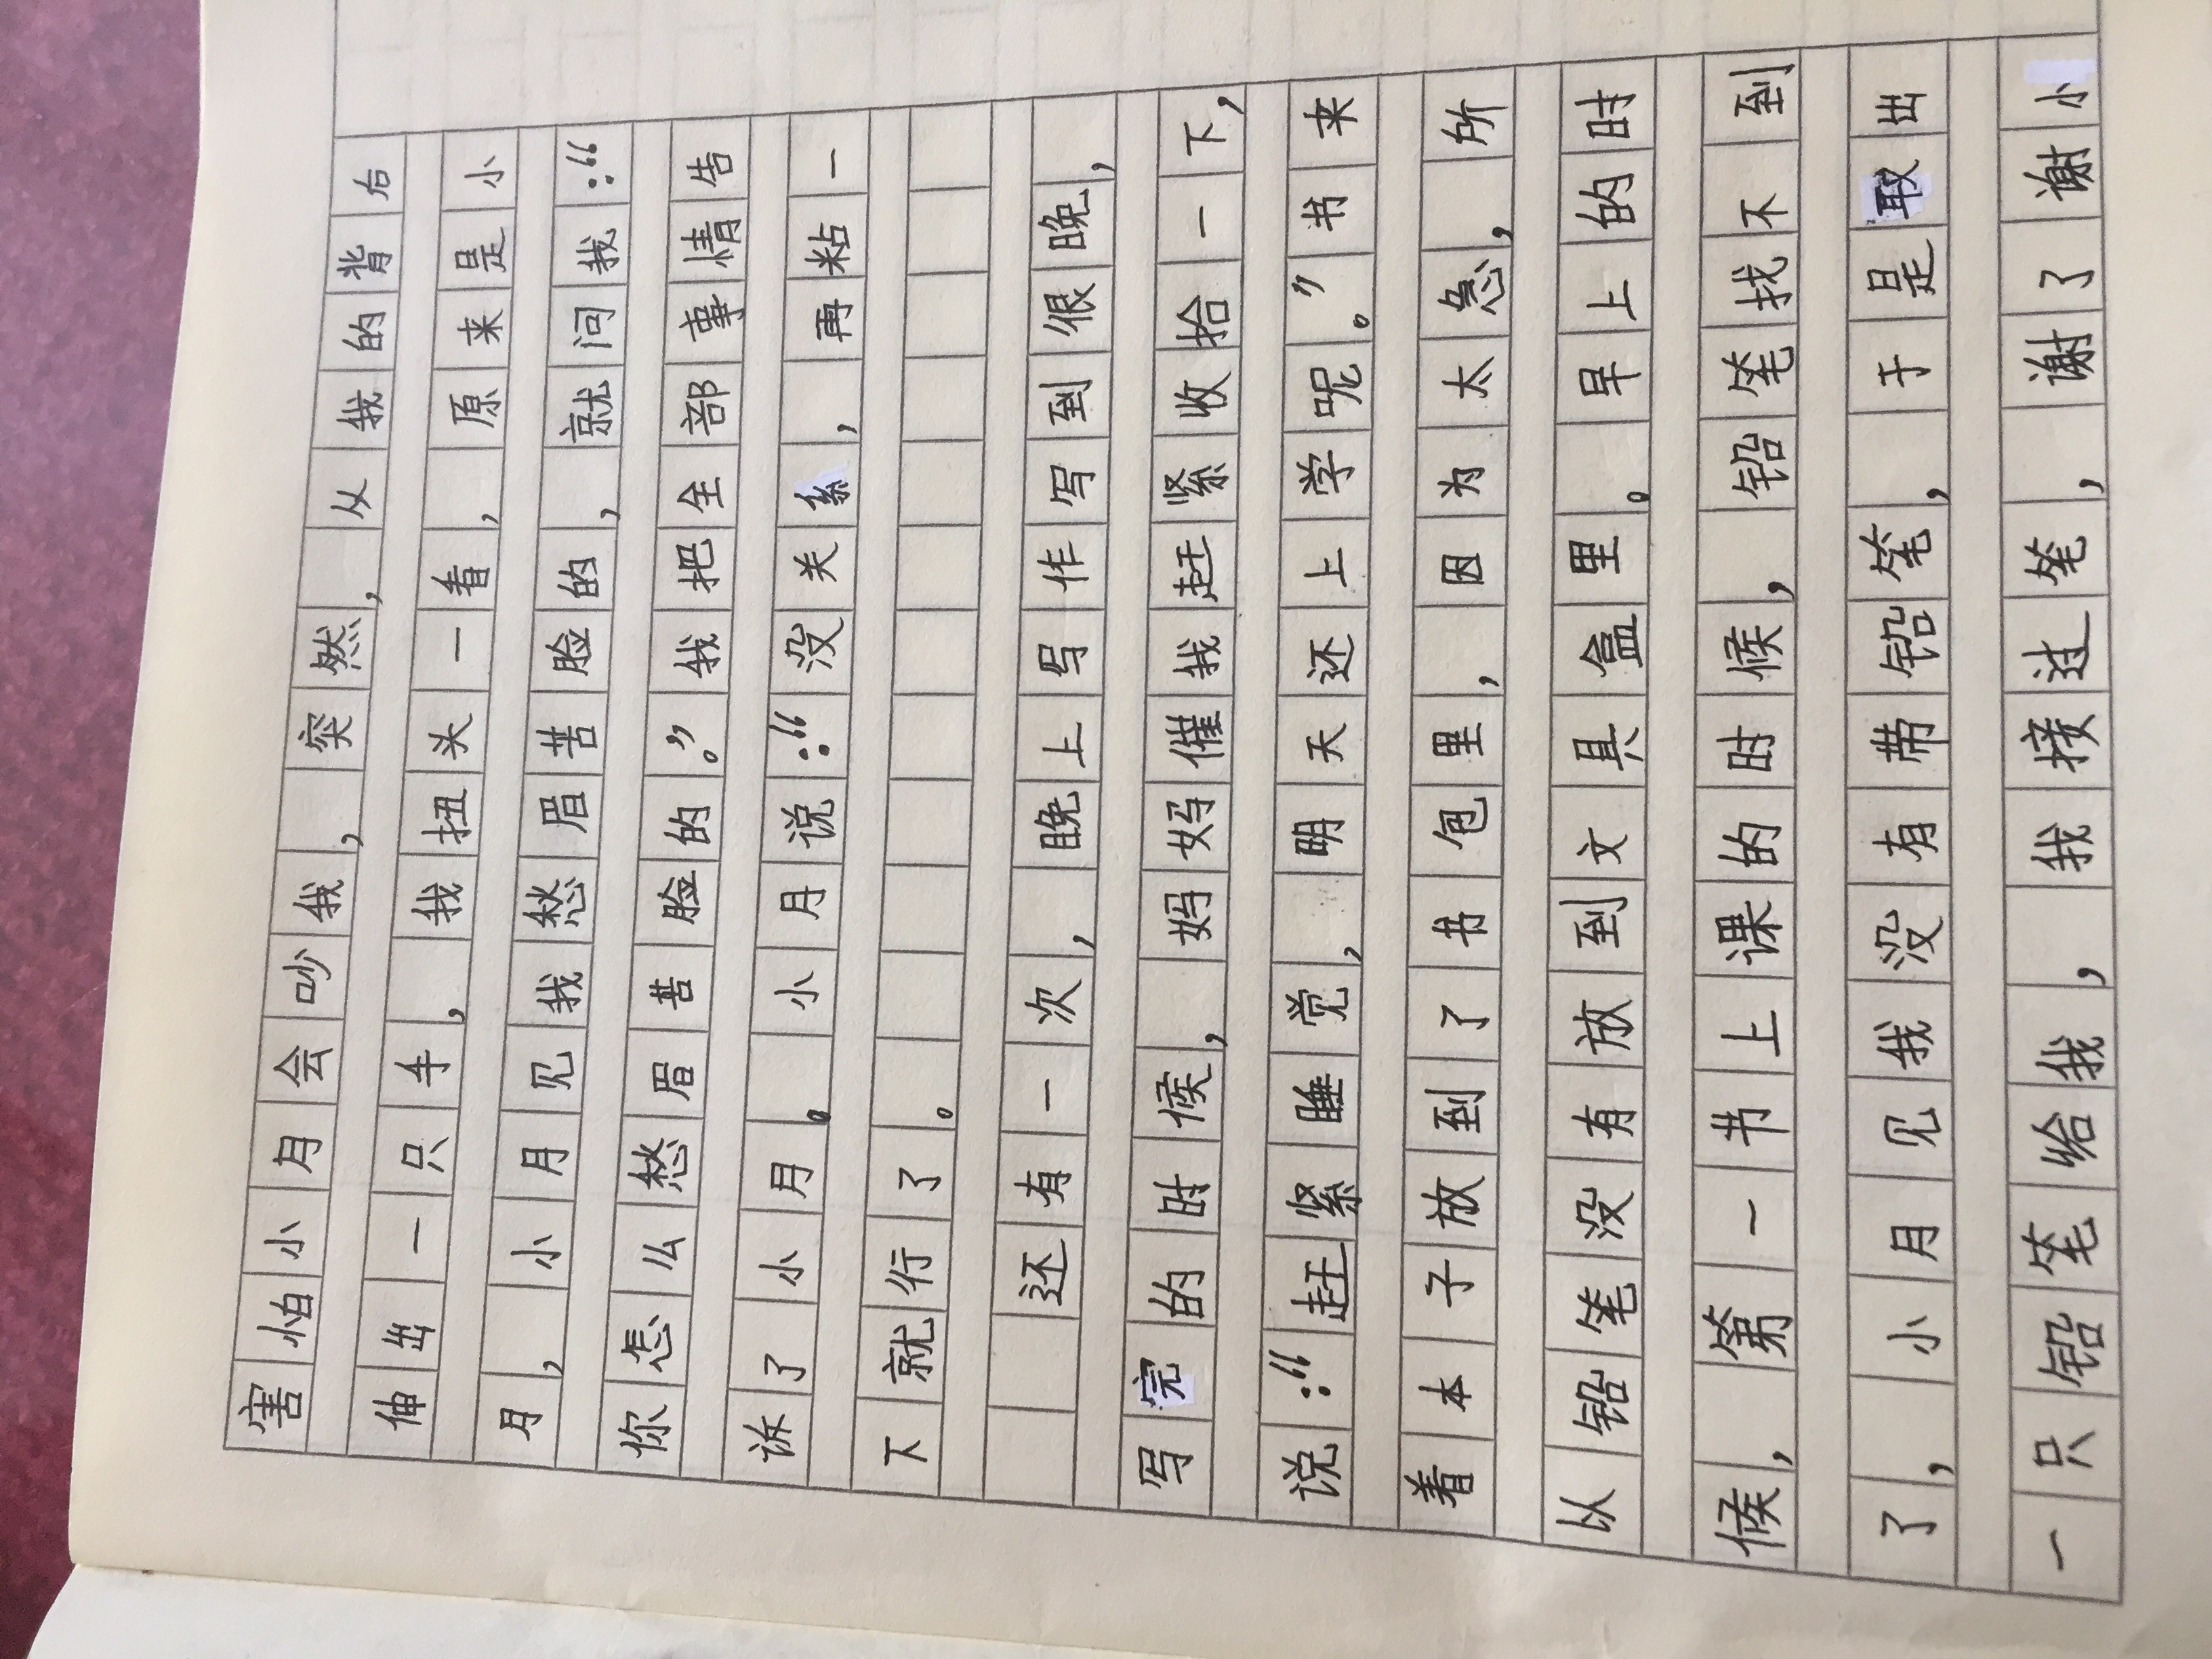 害怕小月会吵我，突然，从我的背后
伸出一只手，我扭头一看，原来是小
月，小月见我愁眉苦脸的，就问我：“
你怎么愁眉苦脸的。”我把全部事情告
诉了小月。小月说：“没关系，再粘一
下就行了。
还有一次，晚上写作写到很晚，
写完的时候，妈妈催我赶紧收拾一下，
说：“赶紧睡觉，明天还上学呢。”书来
着本子放到了书包里，因为太急，所
以铅笔没有放到文具盒里。早上的时
候，第一书上课的时候，铅笔找不到
了，小月见我没有带铅笔，于是取出
一只铅笔给我，我接过笔，谢了谢小